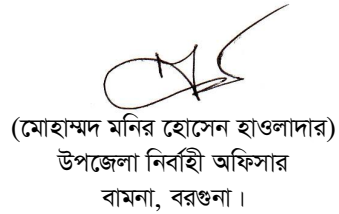 (মোহাম্মদ মনির হোসেন হাওলাদার)
উপজেলা নির্বাহী অফিসার
বামনা, বরগুনা।